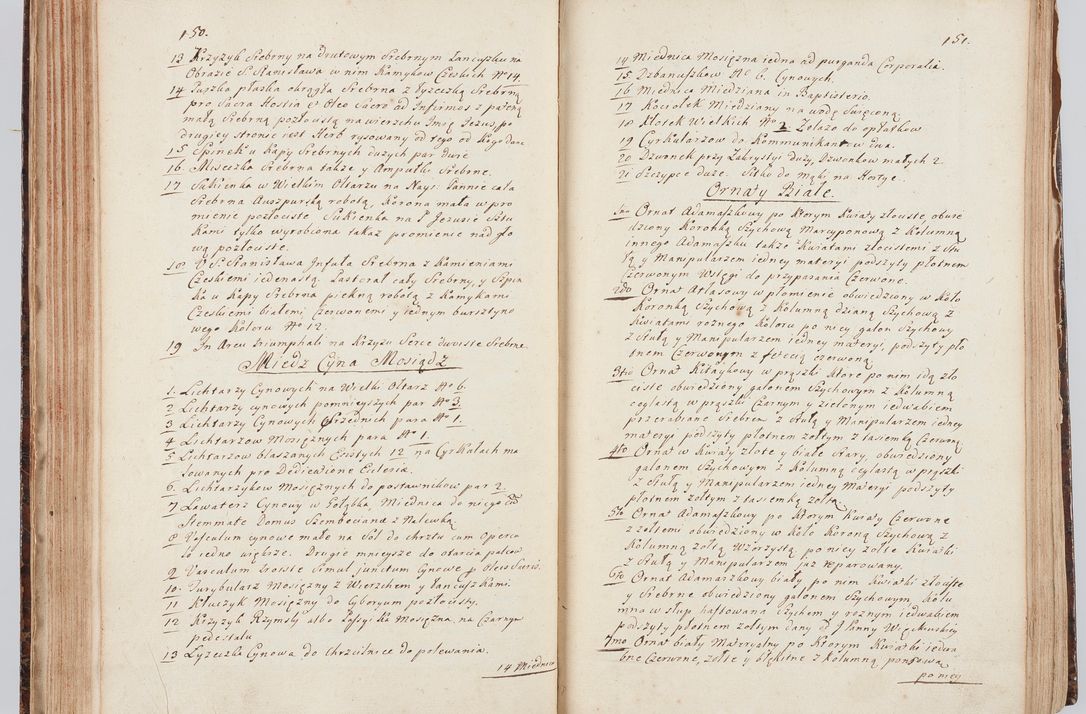 150.
13 Krzyżyk Srebrny na drutowym Srebrnym Łancuszku na
Obrazie S. Stanisława w nim Kamykow Czeskich No 14.
14 Puszka płaska okrągła Srebrna z Łyzeczką Srebrną
pro Sacra Hostia et Oleo Sacro ad Infirmos z pateną
małą Srebrną pozłocistą na wierzchu Imię Jezus, po
drugiey Stronie iest Herb rysowany od tego od Kogo dane
15 Spinek u Kapy Srebrnych dużych par dwie
16. Miseczka Srebrna także y Ampułki Srebrne.
17 Sukienka w Wielkim Ołtarzu na Nays: Pannie cała
Srebrna Auszpurską robotą, Korona mała w pro
mienie pozłociste Sukienka na P. Jezusie Sztu
kami tylko wyrobiona takaż promienie nad gło
wą pozłociste.
18 U S. Stanisława Infuła Srebrna z Kamieniami
Czeskiemi iedenastą Pastorał cały Srebrny, y Szpin
ka u Kapy Srebrna piękną robotą z Kamykami
Czeskiemi białemi Czerwonemi y iednym bursztyno
wego Koloru No 12.
19 In Arcu triumphali na Krzyżu Serce dwoiste Srebrne
Miedz Cyna Mosiądz
1. Lichtarzy Cynowych na Wielki Ołtarz No 6.
2 Lichtarzy cynowych pomnieyszych par No 3.
3 Lichtarzy Cynowych Srzednich para No 1.
4 Lichtarzow Mosiężnych para No 1.
5 Lichtarzow blaszanych Czystych 12 na Cyrkałach ma
lowanych pro Dedicatione Eclesia.
6. Lichtarzykow Mosiężnych do postawnikow par 2
7 Lawaterz Cynowy w Gołąbka, Miednica do niego cum
Stemmate Domus Szembeciana z Nalewką.
8 Vasculum cynowe małe na Sól do chrztu cum Operco
lo iedno większe. Drugie mnieysze do otarcia palcow
9 Vasculum troiste Simul junctum Cynowe p Oleis Sacris.
10. Turybularz Mosiężny z Wierzchem y Łancuszkami.
11 Kluczyk Mosiężny do Cyboryum pozłocisty.
12 Krzyżyk Rzymski albo Passyika Mosiężna na Czarnym
pedestalu
13 Lyzeczka Cynowa do Chrzcilnice do polewania.
14 Miednica
151.
14 Miednica Mosiężna iedna ad purganda Corporalia.
15 Dzbanuszkow No 6. Cynowych.
16 Miednica Miedziana in Baptisterio.
17 Kociołek Miedziany na wodę Swięconą
18 Kłotek Wielkich No 2 Zelazo do opłatkow
19 Cyrkularzow do Kommunikantow dwa.
20 Dzwonek przy Zakrystyi Duży, Dzwonkow małych 2
21 Szczypce duże. Sitko do mąki na Hostye.
Ornaty Białe.
1mo Ornat Adamaszkowy po Ktorym Kwiaty złociste, obwie
dziony Koronką Szychową Marcyponową z Kolumną
innego Adamaszku także Kwiatami złocistemi z Stu
łą y Manipularzem iedney materyi podszyty płotnem
Czerwonym Wstęgi do przypasania Czerwone.
2do Ornat Atłasowy w płomienie obwiedziony w Koło
Koronką Szychową z Kolumną dzianą Szychową z
Kwiatami rożnego Koloru po niey galon Szychowy
z Stułą y Manipularzem iedney materyi, podszyty pło
tnem Czerwonym z fetecią czerwoną
3tio Ornat Kitaykowy w prąszki Ktore po nim idą zło
ciste obwiedziony galonem Szychowym z Kolumną
ceglastą w prąszki Czarnym y zielonym iedwabiem
przerabiane Srebrem z Stułą y Manipularzem iedney
materyi podszyty płotnem żołtym z tasiemką Czerwoną
4to Ornat w Kwiaty złote y białe Stary, obwiedziony
galonem Szychowym z Kolumną ceglastą w prąszki
z Stułą y Manipularzem iedney Materyi podszyty
płotnem żołtym z tasiemką żołtą
5to Ornat Adamaszkowy po Ktorym Kwiaty Czerwone
z żołtemi obwiedziony w Koło Koroną Szychową z
Kolumną żołtą Wzorzystą, po niey żołte Kwiatki
z Stułą y Manipularzem już reparowany.
6to Ornat Adamaszkowy biały po nim Kwiatki złociste
y Srebrne obwiedziony galonem Szychowym, Kolu
mna w słup haftowana Szychem y rożnym iedwabiem
podszyty płotnem żołtym dany od J Panny Węzkowskiey
7mo Ornat biały Materyalny po Ktorym Kwiatki iedwa
bne Czerwone, żołte y błękitne z Kolumną ponsową
po niey